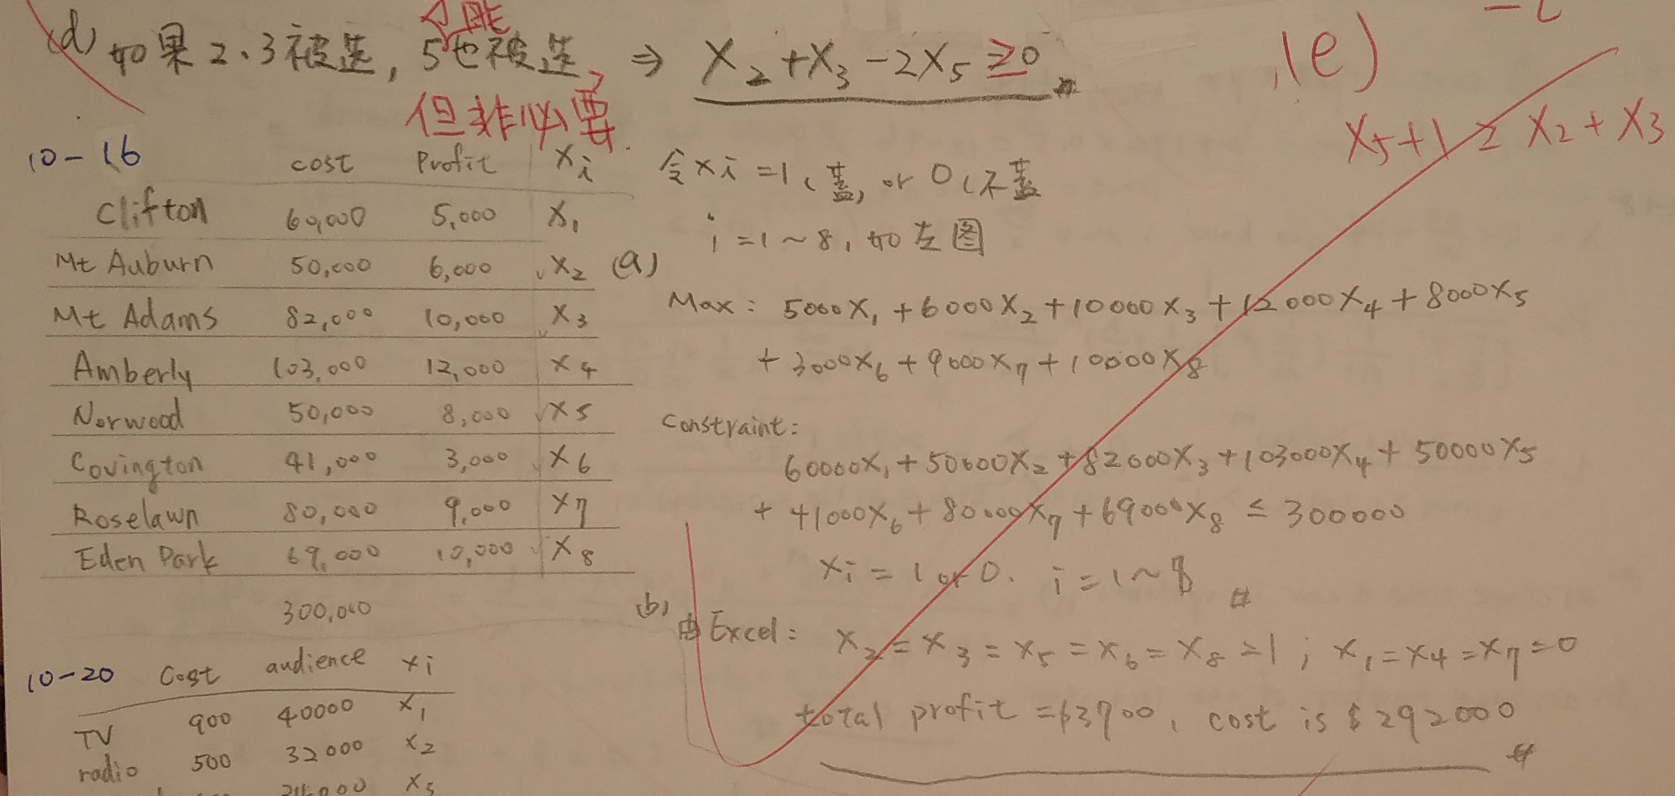 (d) 如果2、3被选, 5也被选 ⇒ X₂+X₃-2X₅≥0
才能
但非必要
(e)
X₅+1≥X₂+X₃
10-16
cost Profit Xi
Clifton 60,000 5,000 X₁
Mt Auburn 50,000 6,000 X₂
Mt Adams 82,000 10,000 X₃
Amberly 103,000 12,000 X₄
Norwood 50,000 8,000 X₅
Covington 41,000 3,000 X₆
Roselawn 80,000 9,000 X₇
Eden Park 69,000 10,000 X₈
300,000
令Xi=1(盖) or 0(不盖
i=1~8, 如左图
(a)
Max: 5000X₁+6000X₂+10000X₃+12000X₄+8000X₅
+3000X₆+9000X₇+10000X₈
Constraint:
60000X₁+50000X₂+82000X₃+103000X₄+50000X₅
+41000X₆+80000X₇+69000X₈≤300000
Xi=1 or 0. i=1~8 #
(b) 由Excel: X₂=X₃=X₅=X₆=X₈=1; X₁=X₄=X₇=0
total profit = , cost is $292000 #
10-20
Cost audience Xi
TV 900 40000 X₁
radio 500 32000 X₂
X₃